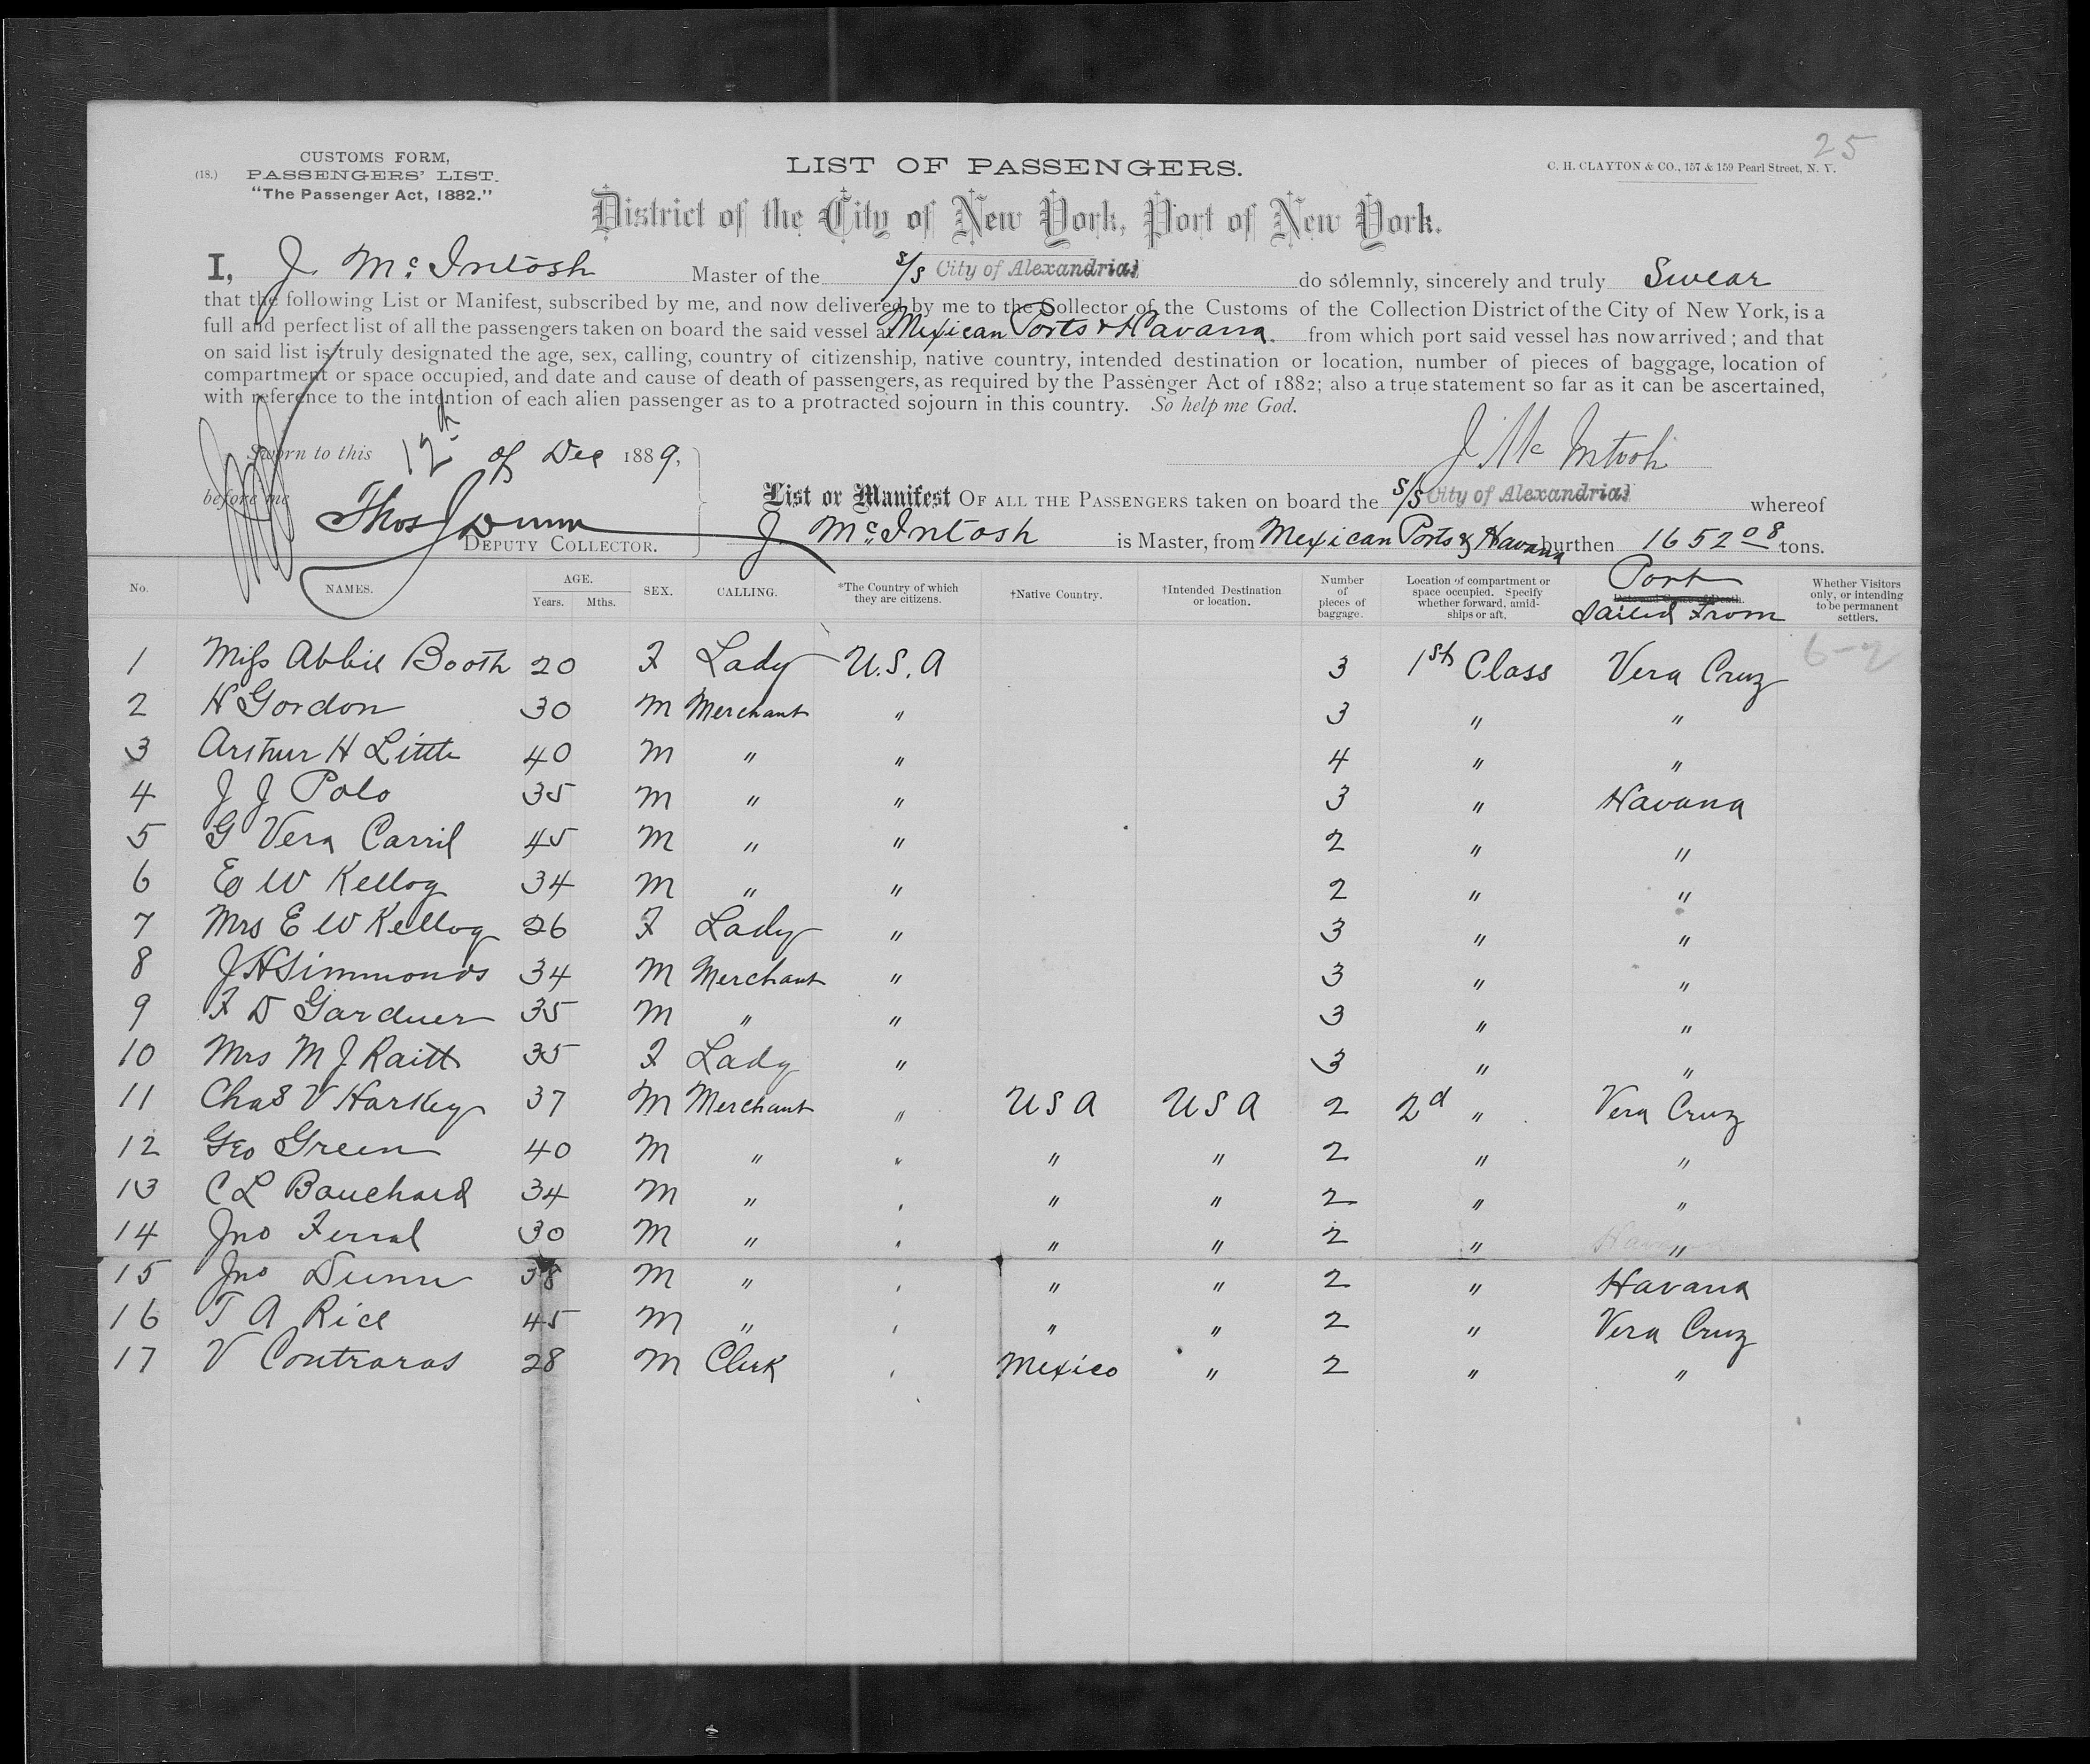 25
CUSTOMS FORM,
(18.) PASSENGERS' LIST.
"The Passenger Act, 1882."
LIST OF PASSENGERS.
C. H. CLAYTON & CO., 157 & 159 Pearl Street, N. Y.
District of the City of New York, Port of New York.
I, J. McIntosh Master of the s/s City of Alexandria do solemnly, sincerely and truly Swear
that the following List or Manifest, subscribed by me, and now delivered by me to the Collector of the Customs of the Collection District of the City of New York, is a
full and perfect list of all the passengers taken on board the said vessel at Mexican Ports & Havana. from which port said vessel has now arrived; and that
on said list is truly designated the age, sex, calling, country of citizenship, native country, intended destination or location, number of pieces of baggage, location of
compartment or space occupied, and date and cause of death of passengers, as required by the Passenger Act of 1882; also a true statement so far as it can be ascertained,
with reference to the intention of each alien passenger as to a protracted sojourn in this country. So help me God.
Sworn to this 12th of Dec 1889,
J Mc Intosh
before me Thos J Dunn
DEPUTY COLLECTOR.
List or Manifest OF ALL THE PASSENGERS taken on board the s/s City of Alexandria whereof
J. McIntosh is Master, from Mexican Ports & Havana burthen 1652 08 tons.
No. NAMES. AGE. Years. Mths. SEX. CALLING. *The Country of which they are citizens. †Native Country. †Intended Destination or location. Number of pieces of baggage. Location of compartment or space occupied. Specify whether forward, amidships or aft. Date and Cause of Death. Port Sailed From Whether Visitors only, or intending to be permanent settlers.
1 Miss Abbie Booth 20 F Lady U.S.A 3 1st Class Vera Cruz
2 H Gordon 30 M Merchant " 3 " "
3 Arthur H Little 40 M " " 4 " "
4 J J Polo 35 M " " 3 " Havana
5 G Vera Carril 45 M " " 2 " "
6 E W Kellog 34 M " " 2 " "
7 Mrs E W Kellog 26 F Lady " 3 " "
8 J H Simmonds 34 M Merchant " 3 " "
9 F D Garduer 35 M " " 3 " "
10 Mrs M J Raitt 35 F Lady " 3 " "
11 Chas V Harkey 37 M Merchant " U S A U S A 2 2d " Vera Cruz
12 Geo Green 40 M " " " " 2 " "
13 C L Bouchard 34 M " " " " 2 " "
14 Jno Ferral 30 M " " " " 2 " "
15 Jno Dunn 38 M " " " " 2 " Havana
16 T A Rice 45 M " " " " 2 " Vera Cruz
17 V Contraras 28 M Clerk " Mexico " 2 " "